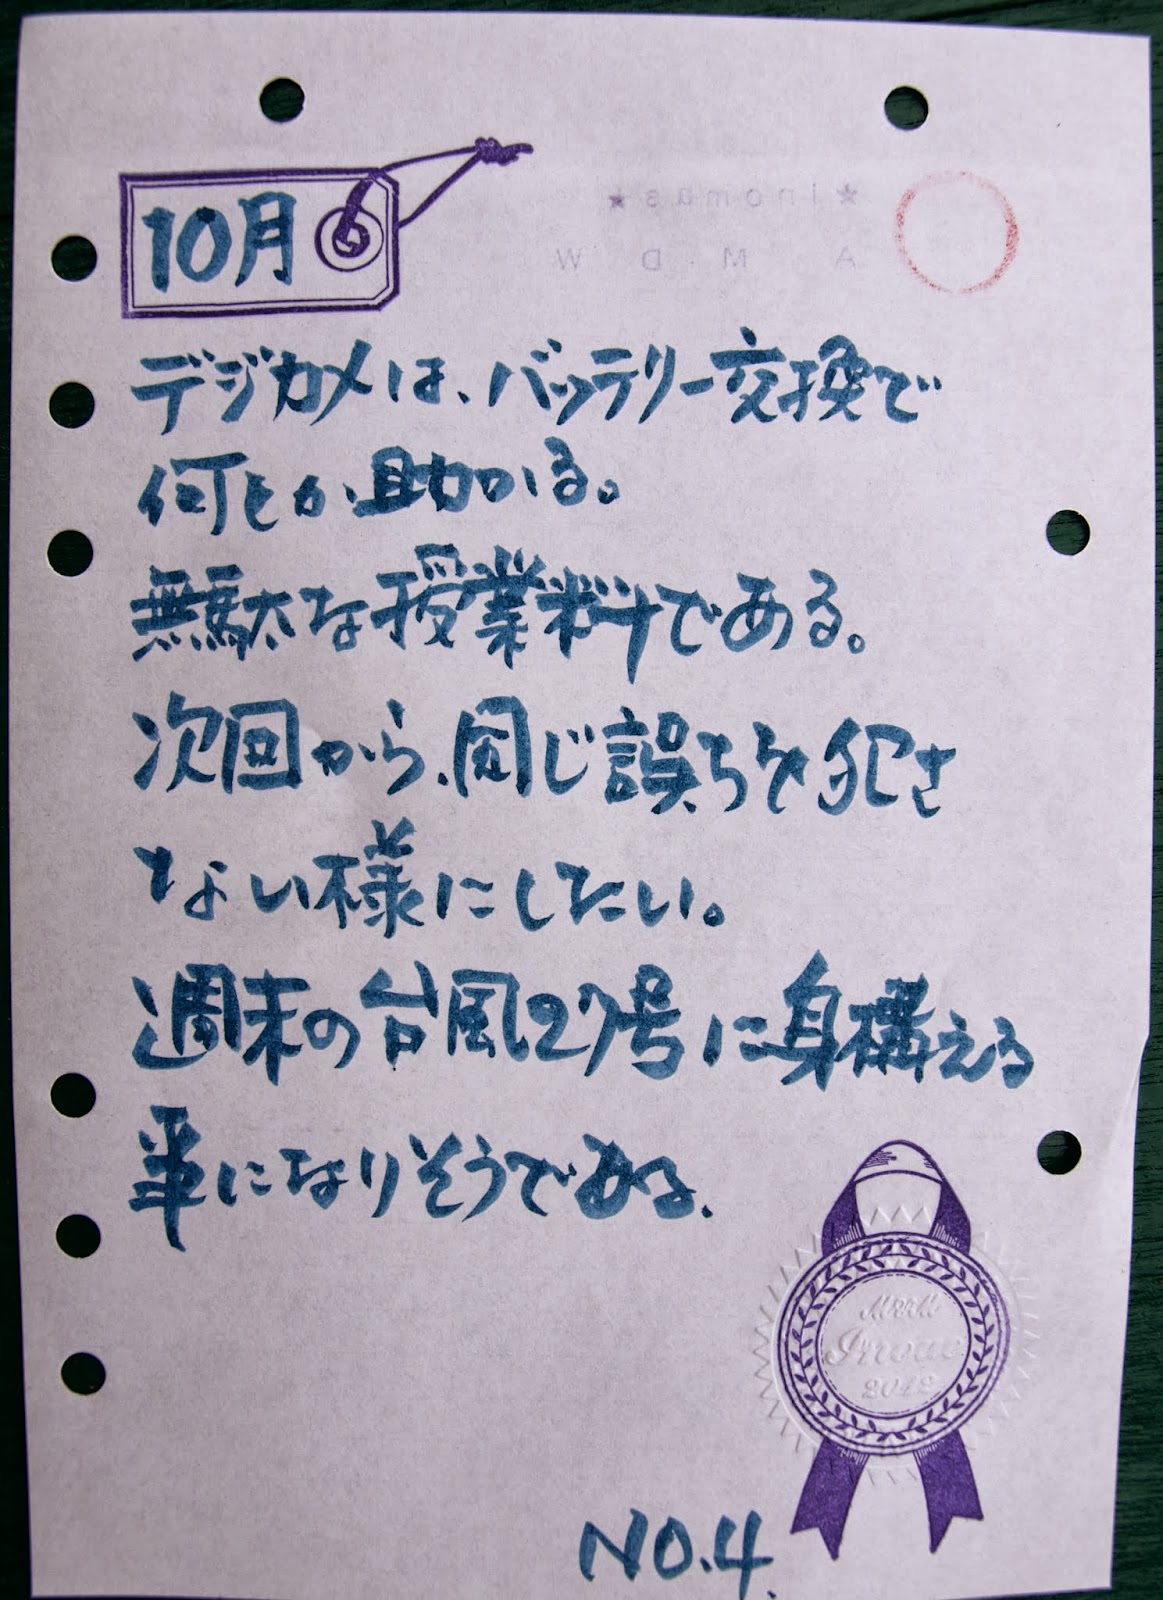 ★Inomas★
A M D W
10月
デジカメは、バッテリー交換で
何とか助かる。
無駄な授業料である。
次回から、同じ誤ちを犯さ
ない様にしたい。
週末の台風27号に身構える
事になりそうである.
Inoue
2012
NO.4.